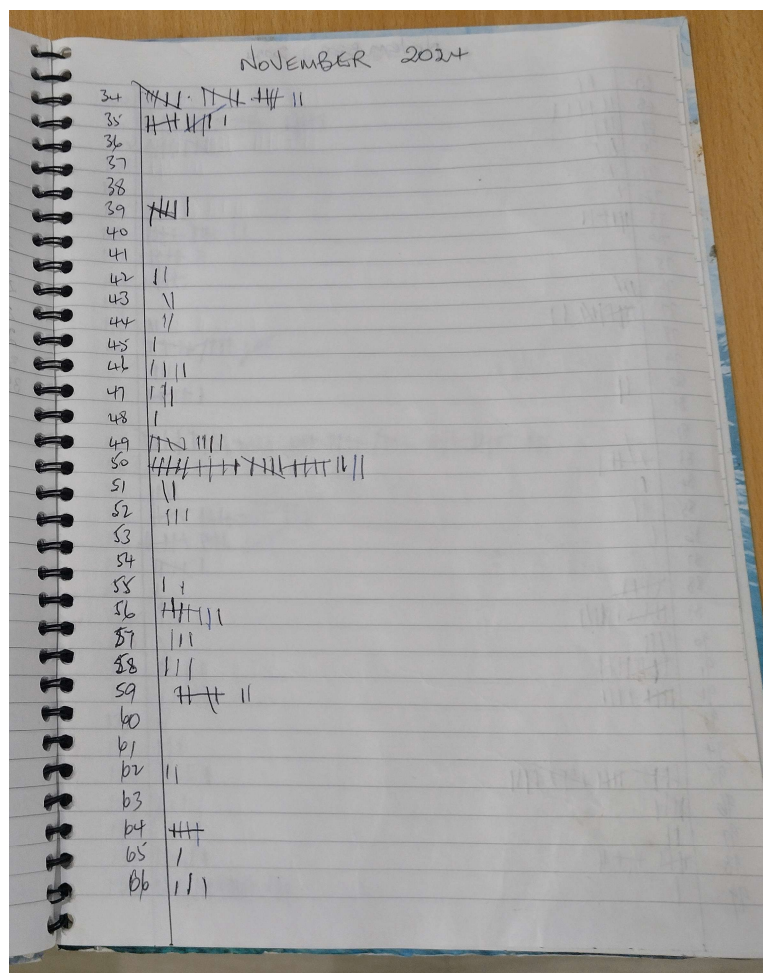 NOVEMBER 2024
34 𝍸 𝍸 𝍸 ||
35 𝍸 𝍸 |
36
37
38
39 𝍸 |
40
41
42 ||
43 ||
44 ||
45 |
46 ||||
47 |||
48 |
49 𝍸 ||||
50
51 ||
52 |||
53
54
55 ||
56 𝍸 |||
57 |||
58 |||
59 𝍸 ||
60
61
62 ||
63
64
65 |
66 |||